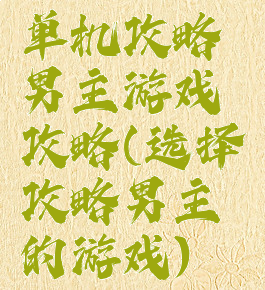 单机攻略
男主游戏
攻略(选择
攻略男主
的游戏)